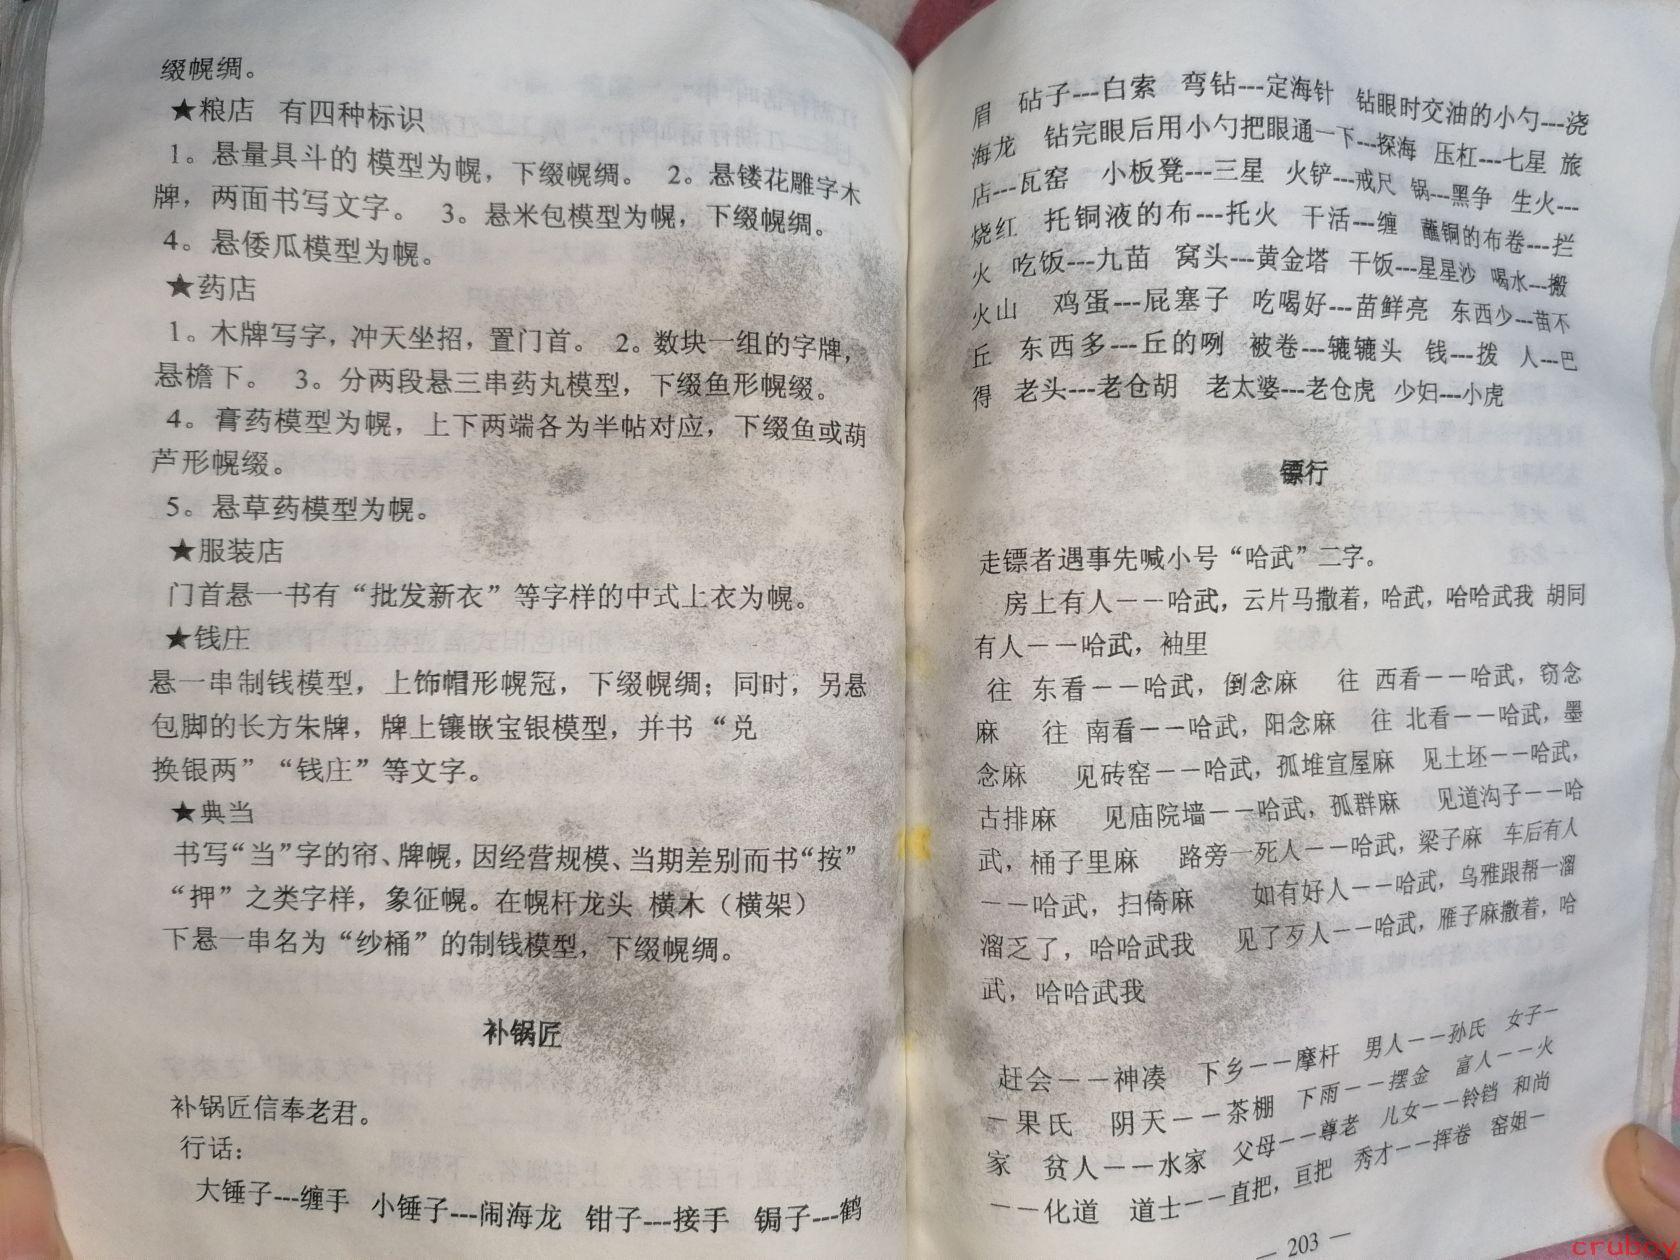 缀幌绸。
★粮店 有四种标识
1。悬量具斗的 模型为幌，下缀幌绸。 2。悬镂花雕字木
牌，两面书写文字。 3。悬米包模型为幌，下缀幌绸。
4。悬倭瓜模型为幌。
★药店
1。木牌写字，冲天坐招，置门首。 2。数块一组的字牌，
悬檐下。 3。分两段悬三串药丸模型，下缀鱼形幌缀。
4。膏药模型为幌，上下两端各为半帖对应，下缀鱼或葫
芦形幌缀。
5。悬草药模型为幌。
★服装店
门首悬一书有“批发新衣”等字样的中式上衣为幌。
★钱庄
悬一串制钱模型，上饰帽形幌冠，下缀幌绸；同时，另悬
包脚的长方朱牌，牌上镶嵌宝银模型，并书 “兑
换银两” “钱庄”等文字。
★典当
书写“当”字的帘、牌幌，因经营规模、当期差别而书“按”
“押”之类字样，象征幌。在幌杆龙头 横木（横架）
下悬一串名为“纱桶”的制钱模型，下缀幌绸。
补锅匠
补锅匠信奉老君。
行话：
大锤子---缠手 小锤子---闹海龙 钳子---接手 锔子---鹤
眉 砧子---白索 弯钻---定海针 钻眼时交油的小勺---浇
海龙 钻完眼后用小勺把眼通一下---探海 压杠---七星 旅
店---瓦窑 小板凳---三星 火铲---戒尺 锅---黑争 生火---
烧红 托铜液的布---托火 干活---缠 蘸铜的布卷---拦
火 吃饭---九苗 窝头---黄金塔 干饭---星星沙 喝水---搬
火山 鸡蛋---屁塞子 吃喝好---苗鲜亮 东西少---苗不
丘 东西多---丘的咧 被卷---辘辘头 钱---拨 人---巴
得 老头---老仓胡 老太婆---老仓虎 少妇---小虎
镖行
走镖者遇事先喊小号“哈武”二字。
房上有人－－哈武，云片马撒着，哈武，哈哈武我 胡同
有人－－哈武，袖里
往 东看－－哈武，倒念麻 往 西看－－哈武，窃念
麻 往 南看－－哈武，阳念麻 往 北看－－哈武，墨
念麻 见砖窑－－哈武，孤堆宣屋麻 见土坯－－哈武，
古排麻 见庙院墙－－哈武，孤群麻 见道沟子－－哈
武，桶子里麻 路旁一死人－－哈武，梁子麻 车后有人
－－哈武，扫倚麻 如有好人－－哈武，乌雅跟帮一溜
溜乏了，哈哈武我 见了歹人－－哈武，雁子麻撒着，哈
武，哈哈武我
赶会－－神凑 下乡－－摩杆 男人－－孙氏 女子－
－果氏 阴天－－茶棚 下雨－－摆金 富人－－火
家 贫人－－水家 父母－－尊老 儿女－－铃铛 和尚
－－化道 道士－－直把，亘把 秀才－－挥卷 窑姐－
— 203 —
cruboy